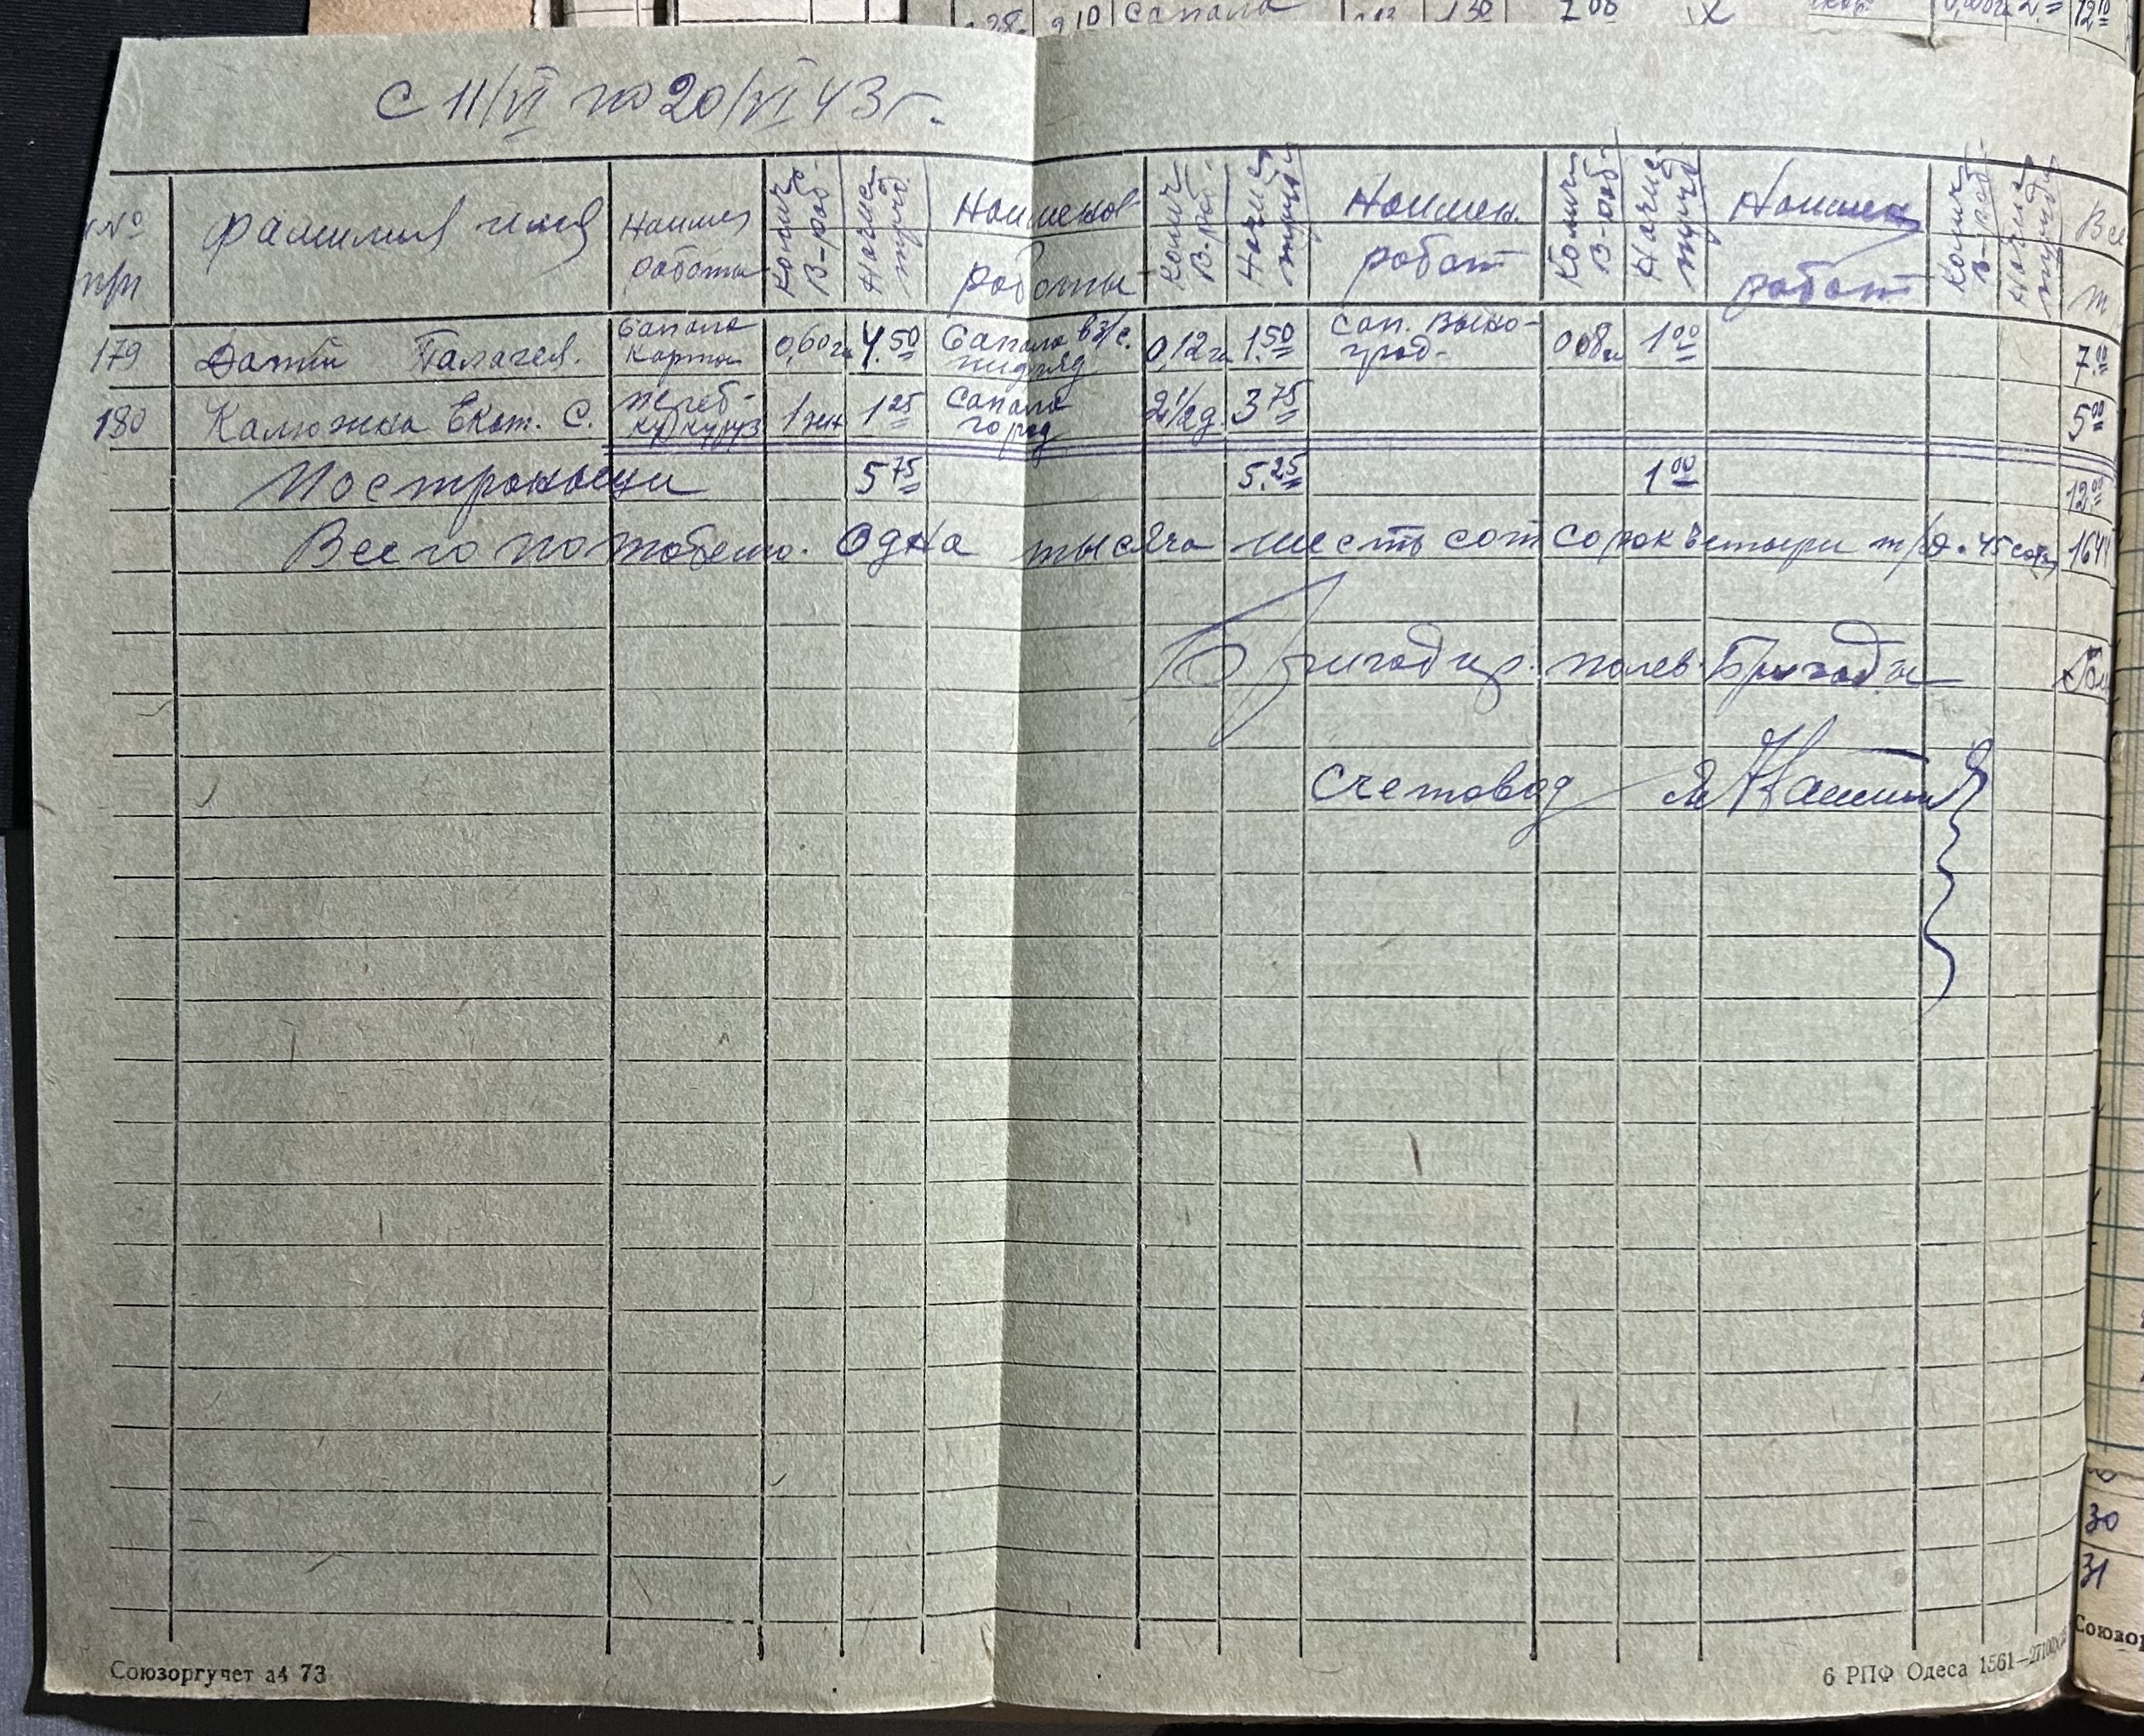 28 210 сапала 130 700
12 10
С 11/VI по 20/VI 43 г.
№ п/п Фамилия имя Наимен работы Колич в-раб. Начис труд. Наименов работы Колич в-раб. Начис труд Наимен. работ Колич в-раб. Начис труд Наимен работ Колич в-раб. Начис труд Все т
179 Палачея. Сапала 0,60 га 4.50 Сапала вз/с. 0,12 га 1.50 Сап. 0,08 га 1 00 7.00
180 Калюжка Екат. С. переб- кукуруз 1 ден 1 25 Сапала город 2 1/2 д. 3 75 5 00
По странице 5 75 5.25 1 00 12 00
Всего по табелю. Одна тысяча шесть сот сорок четыри тр/д. 45 сот. 1644
Бригадир. полев. Бригады
Счетовод
30
31
Союзоргучет а4 73
6 РПФ Одеса 1561—27100
Союзор